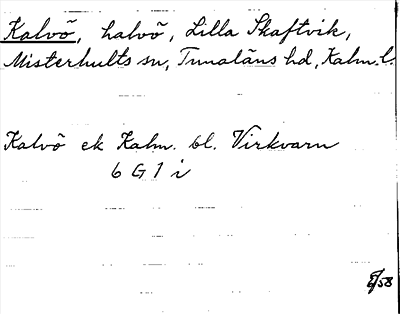 Kalvö, halvö, Lilla Skaftvik,
Misterhults sn, Tunaläns hd, Kalm. l.
Kalvö ek Kalm. bl. Virkvarn
6 G 1 i
/58